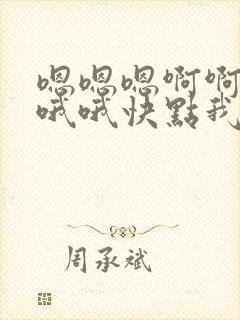 嗯嗯嗯啊啊
哦哦快點我
周承斌